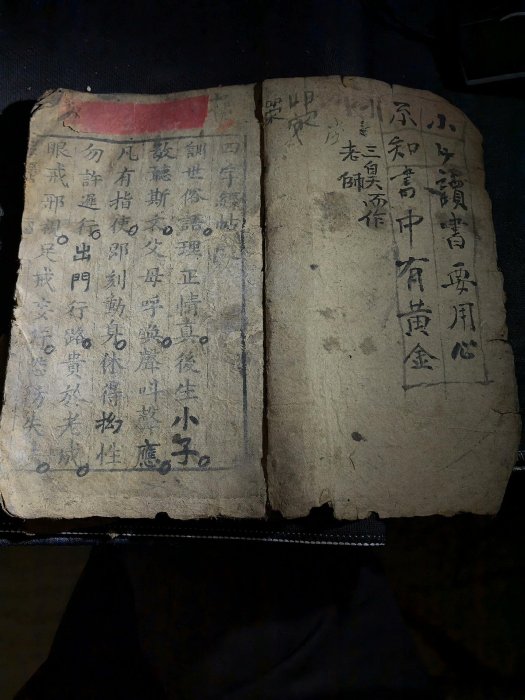 小少讀書要用心
不知書中有黃金
三皇而作
老師
四字經帖
訓世俗語理正情真後生小子
敬聽斯言父母呼喚聲叫聲應
凡有指使即刻動身休得拗性
勿許遲行出門行路貴於老成
眼戒邪視足戒妄行